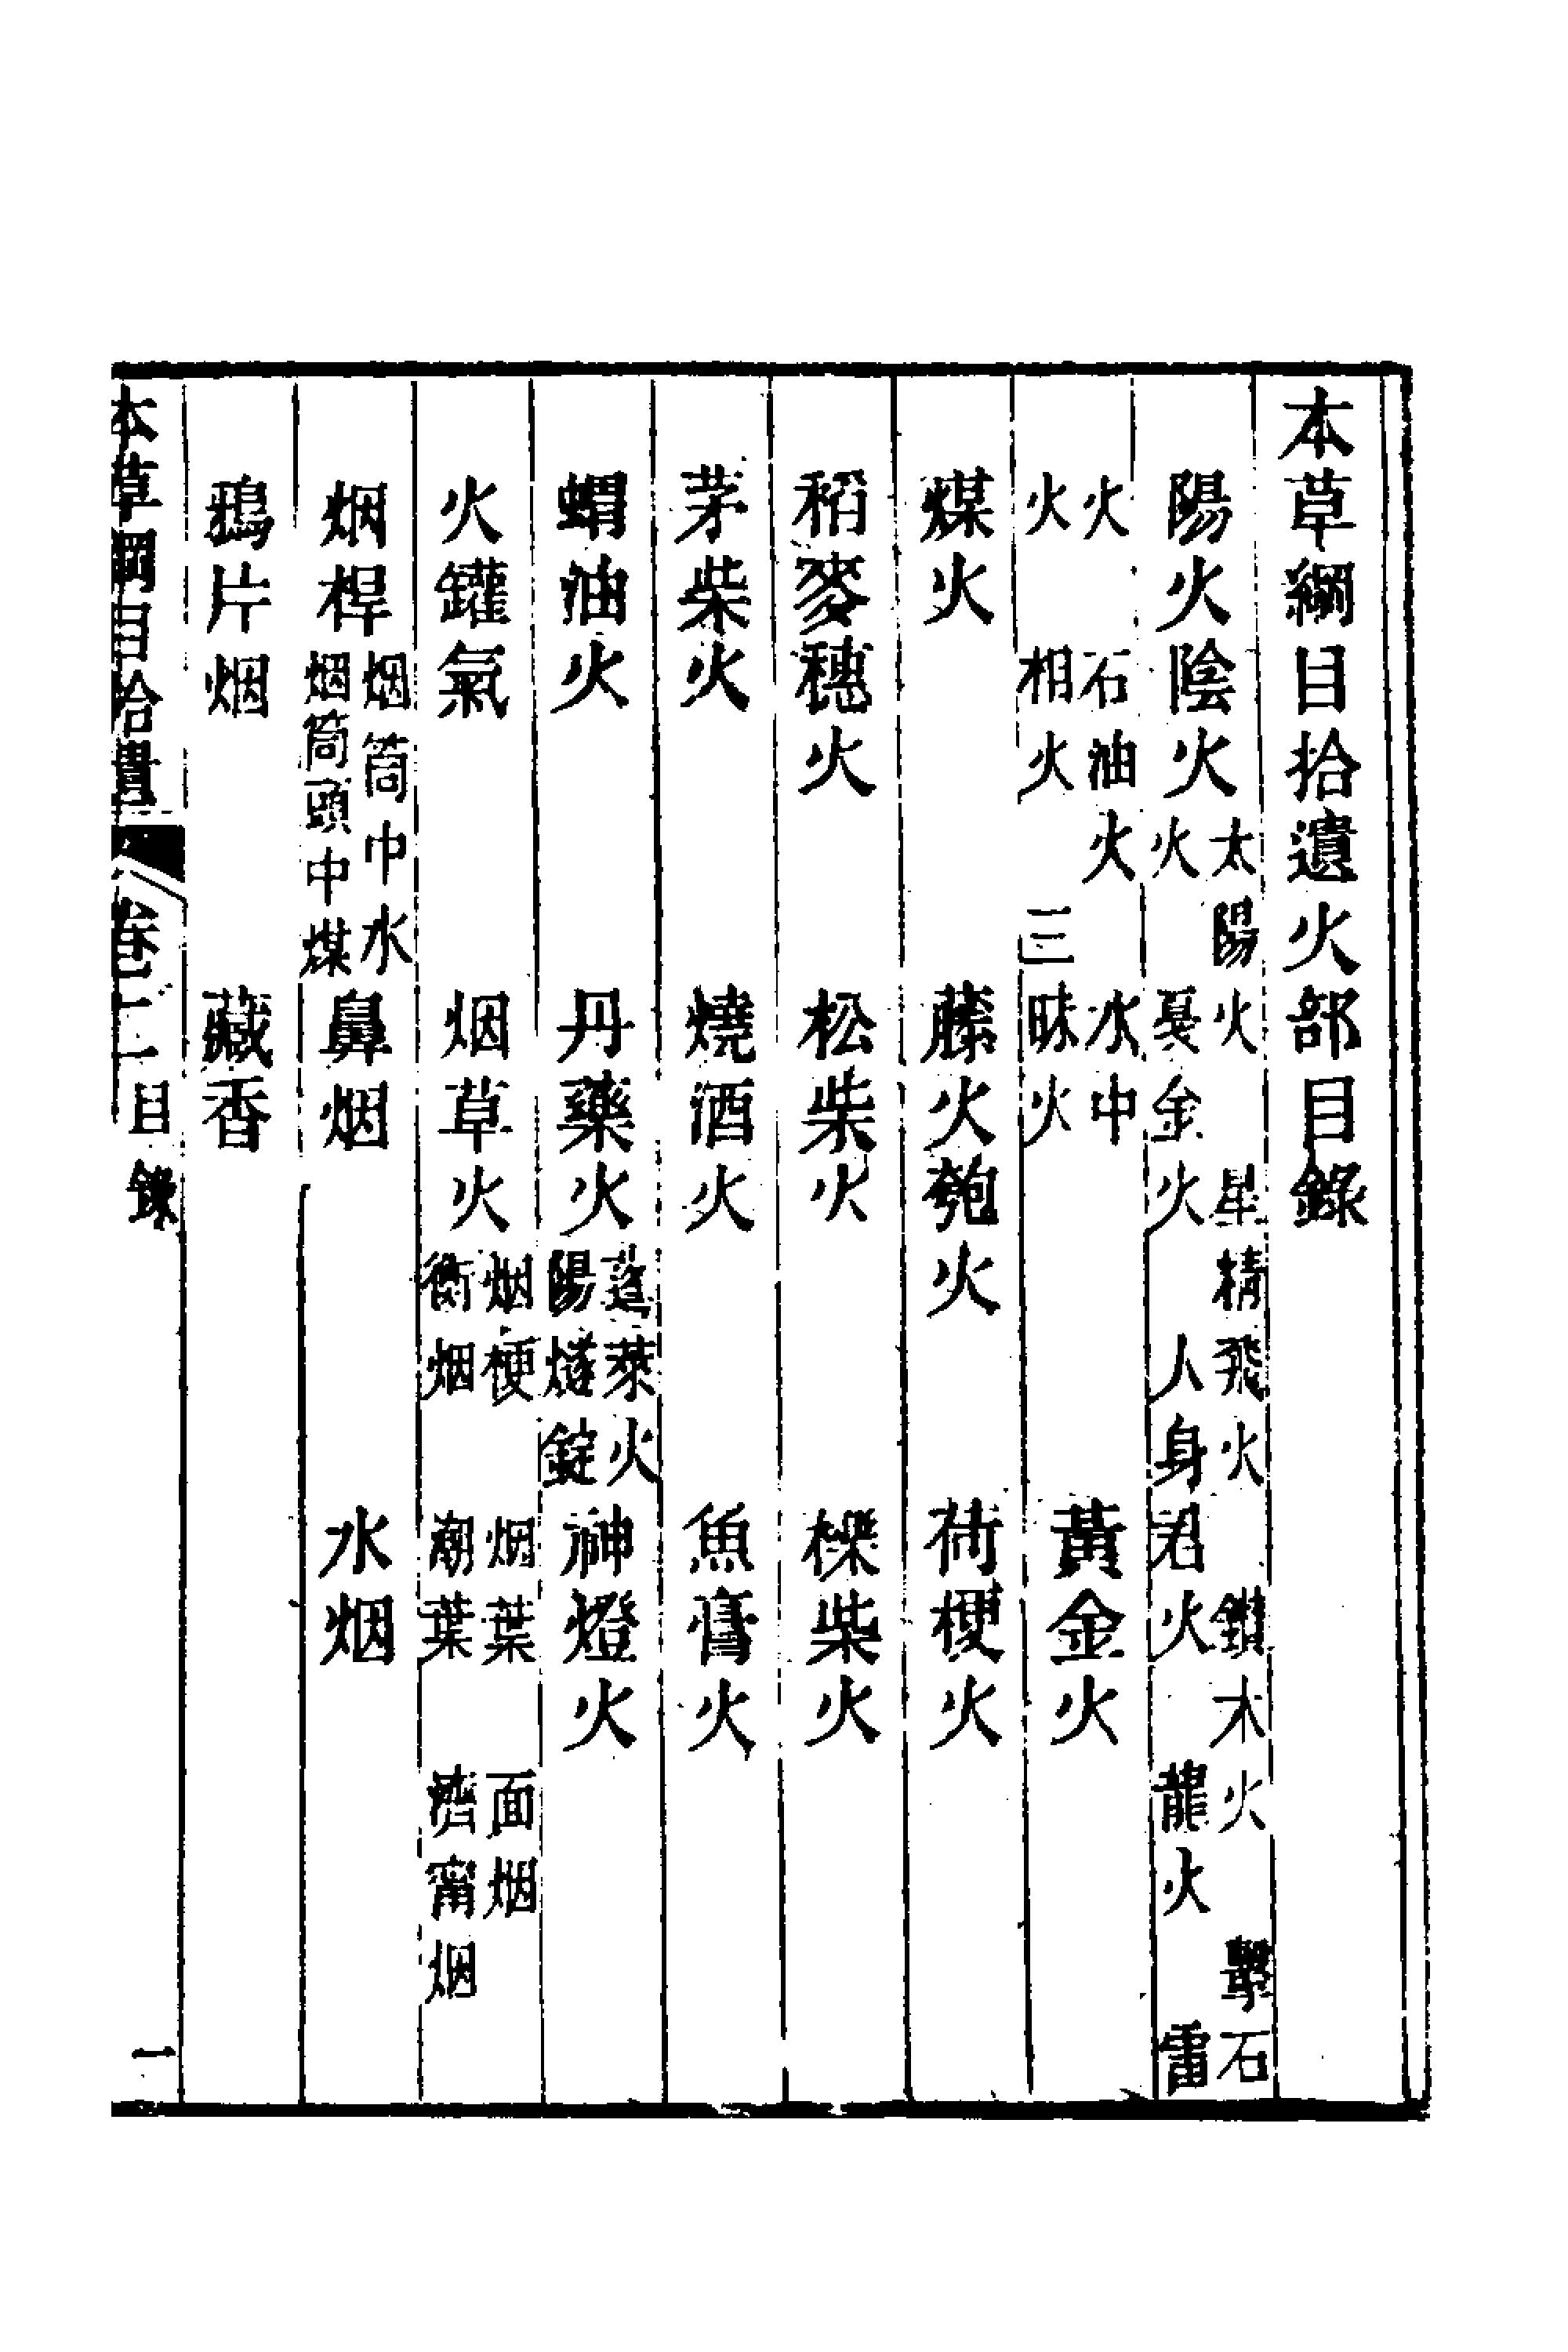 本草綱目拾遺火部目錄
陽火陰火 太陽火 星精飛火 鑽木火 擊石
火 戛金火 人身君火 龍火 雷
火 石油火 水中
火 相火 三昧火 黃金火
煤火 藤火匏火 荷梗火
稻麥穗火 松柴火 櫟柴火
茅柴火 燒酒火 魚膏火
蝟油火 丹藥火 蓬萊火 陽燧錠 神燈火
火罐氣 烟草火 烟梗 烟葉 面烟
衡烟 潮葉 濟甯烟
烟桿 烟筒中水 烟筒頭中煤 鼻烟 水烟
鴉片烟 藏香
本草綱目拾遺 卷二 目錄 一